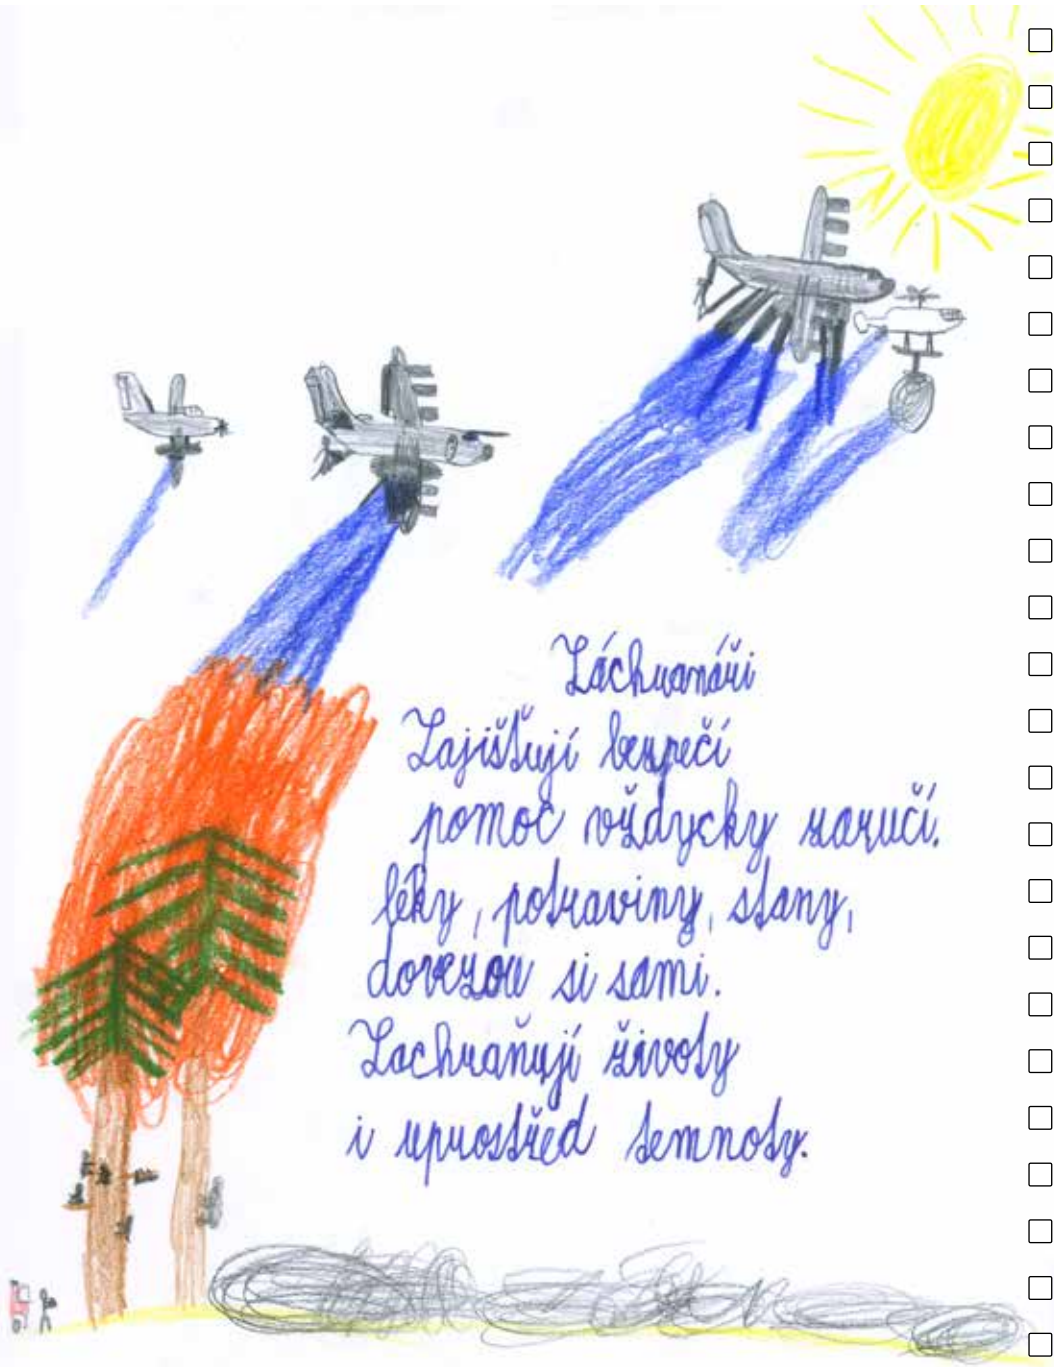 Záchranáři
Zajišťují bezpečí
pomoc vždycky zaručí.
léky, potraviny, stany,
dovezou si sami.
Zachraňují životy
i uprostřed temnoty.